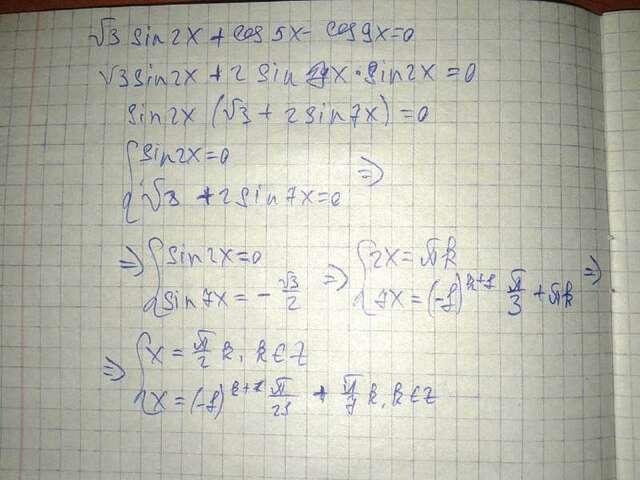 √3 sin2x + cos5x - cos9x=0
√3sin2x + 2 sin7x·sin2x = 0
sin2x (√3 + 2sin7x) = 0
{ sin2x=0
√3 + 2sin7x=0 ⇒
⇒ { sin2x=0
sin7x = -√3/2 ⇒ { 2x = πk
7x = (-1)^(k+1) π/3 + πk ⇒
⇒ { x = π/2 k, k∈Z
x = (-1)^(k+1) π/21 + π/7 k, k∈Z